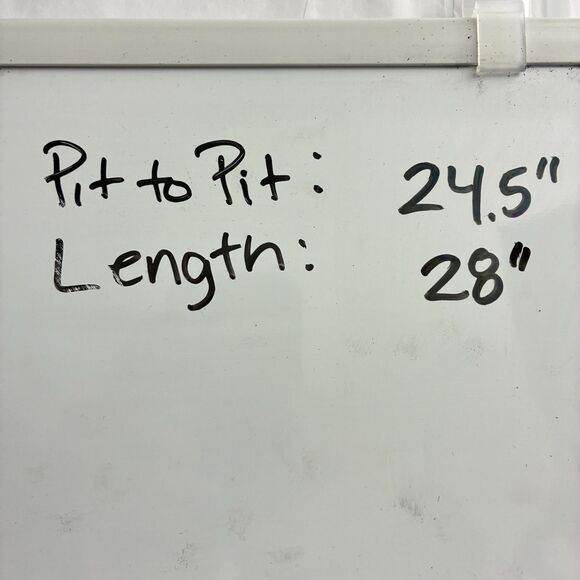 Pit to Pit: 24.5"
Length: 28"